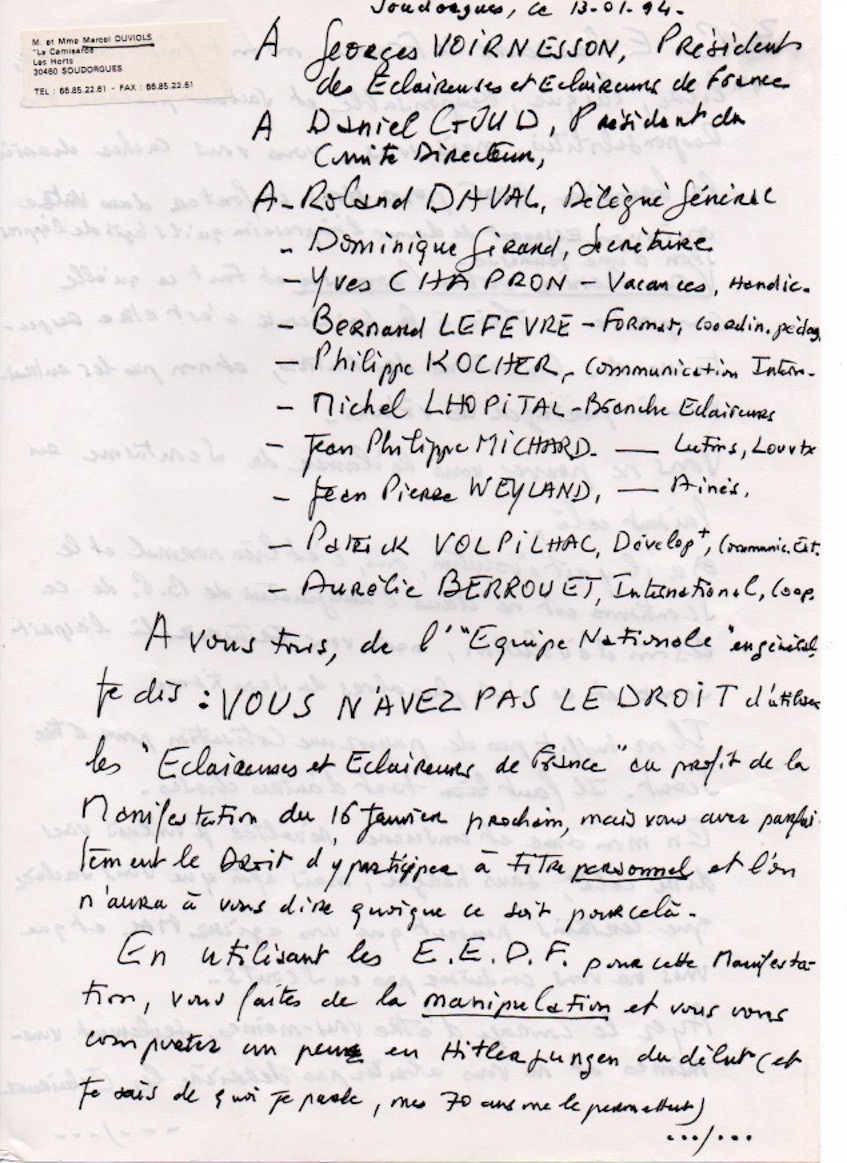 Soudorgues, ce 13-01-94.
M. et Mme Marcel DUVIOLS
"La Camisarde
Les Horts
30460 SOUDORGUES
TEL : 66.85.22.61 - FAX : 66.85.22.61
A Georges VOIRNESSON, Président
des Eclaireuses et Eclaireurs de France
A Daniel GJUD, Président du
Comité Directeur,
A - Roland DAVAL, Délégué Général
- Dominique Girard, Secrétaire
- Yves CHAPRON - Vacances, Handic.
- Bernard LEFEVRE - Format, Coordin. pédag
- Philippe KOCHER, Communication Intern.
- Michel LHOPITAL - Branche Eclaireurs
- Jean Philippe MICHARD. — Lutins, Louvtx
- Jean Pierre WEYLAND, — Ainés,
- Patrick VOLPILHAC, Dévelop+, Communic. Ext.
- Aurélie BERROUET, International, Coop.
A vous tous, de l'"Equipe Nationale" en général,
Je dis : VOUS N'AVEZ PAS LE DROIT d'utiliser
les "Eclaireuses et Eclaireurs de France" au profit de la
Manifestation du 16 Janvier prochain, mais vous avez parfai
tement le Droit d'y participer à titre personnel et l'on
n'aura à vous dire quoique ce soit pour celà.
En utilisant les E.E.D.F. pour cette Manifesta-
tion, vous faites de la manipulation et vous vous
comportez un peu en Hitlerjungen du début (et
Je sais de quoi Je parle, mes 70 ans me le permettent)
.../...